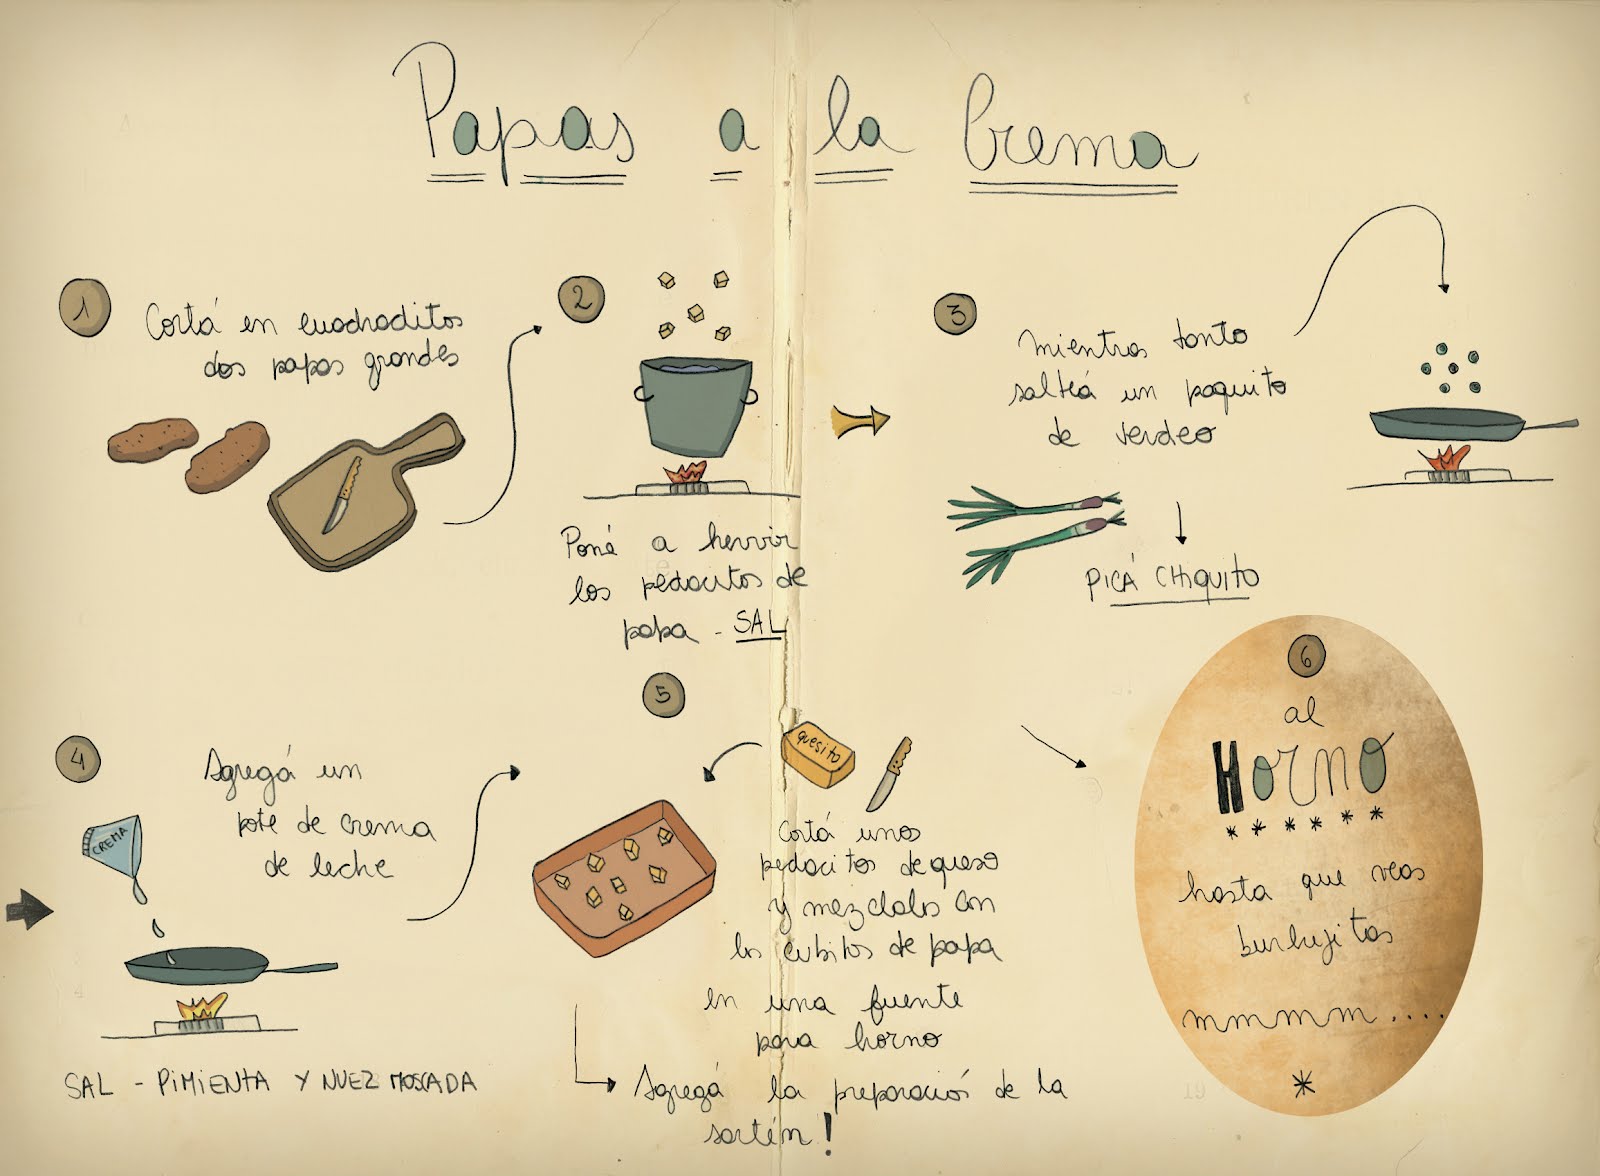 Papas a la Crema
1
Cortá en cuadraditos
dos papas grandes
2
Poné a hervir
los pedacitos de
papa - SAL
3
mientras tanto
salteá un paquito
de verdeo
PICÁ CHIQUITO
4
Agregá un
pote de crema
de leche
CREMA
SAL - PIMIENTA Y NUEZ MOSCADA
5
quesito
Cortá unos
pedacitos de queso
y mezclalos con
los cubitos de papa
en una fuente
para horno
Agregá la preparación de la
sartén!
6
al
HORNO
******
hasta que veas
burbujitas
mmmm....
*